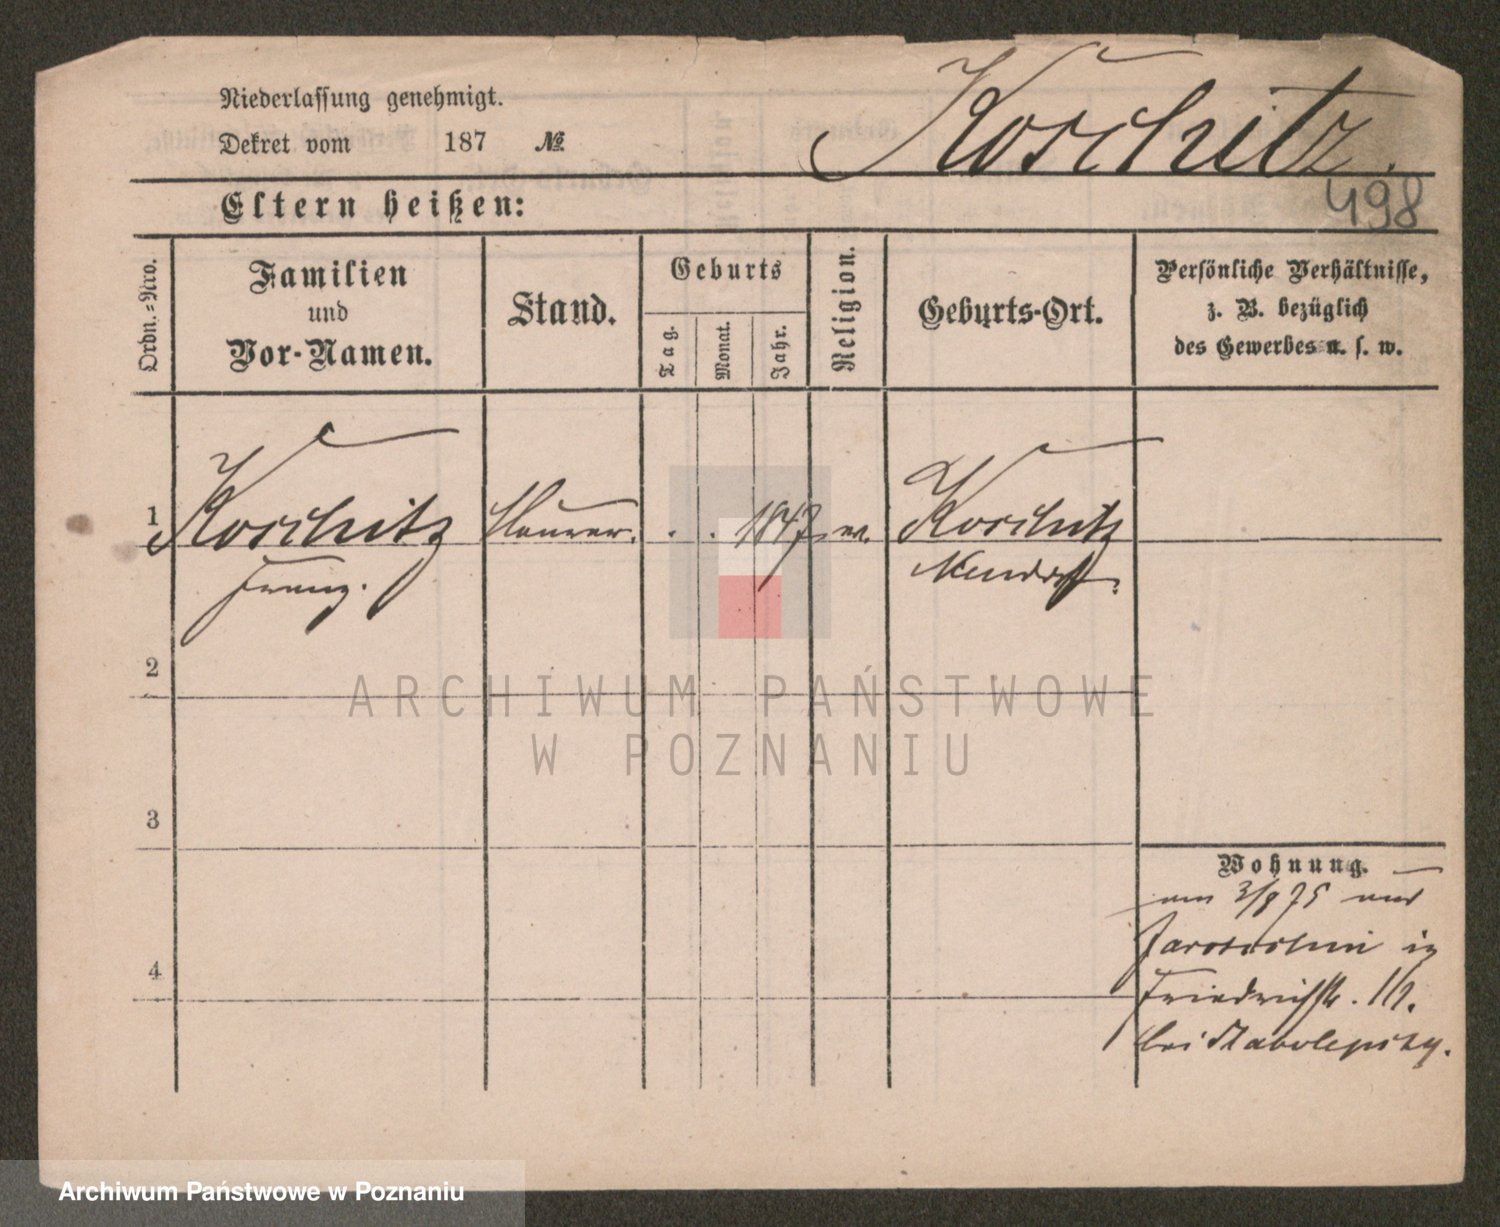 Niederlassung genehmigt.
Dekret vom 187 №
Koschitz.
498
Eltern heißen:
Ordn.-Nro.
Familien
und
Vor-Namen.
Stand.
Geburts
Tag.
Monat.
Jahr.
Religion.
Geburts-Ort.
Persönliche Verhältnisse,
z. B. bezüglich
des Gewerbes u. s. w.
1 Koschitz Maurer. . . 1847. ev. Koschitz
Franz. Neudorf.
2
3
4
Wohnung.
am 3/8 75 aus
Jarotschin in
Friedrichstr.
bei
ARCHIWUM PAŃSTWOWE
W POZNANIU
Archiwum Państwowe w Poznaniu